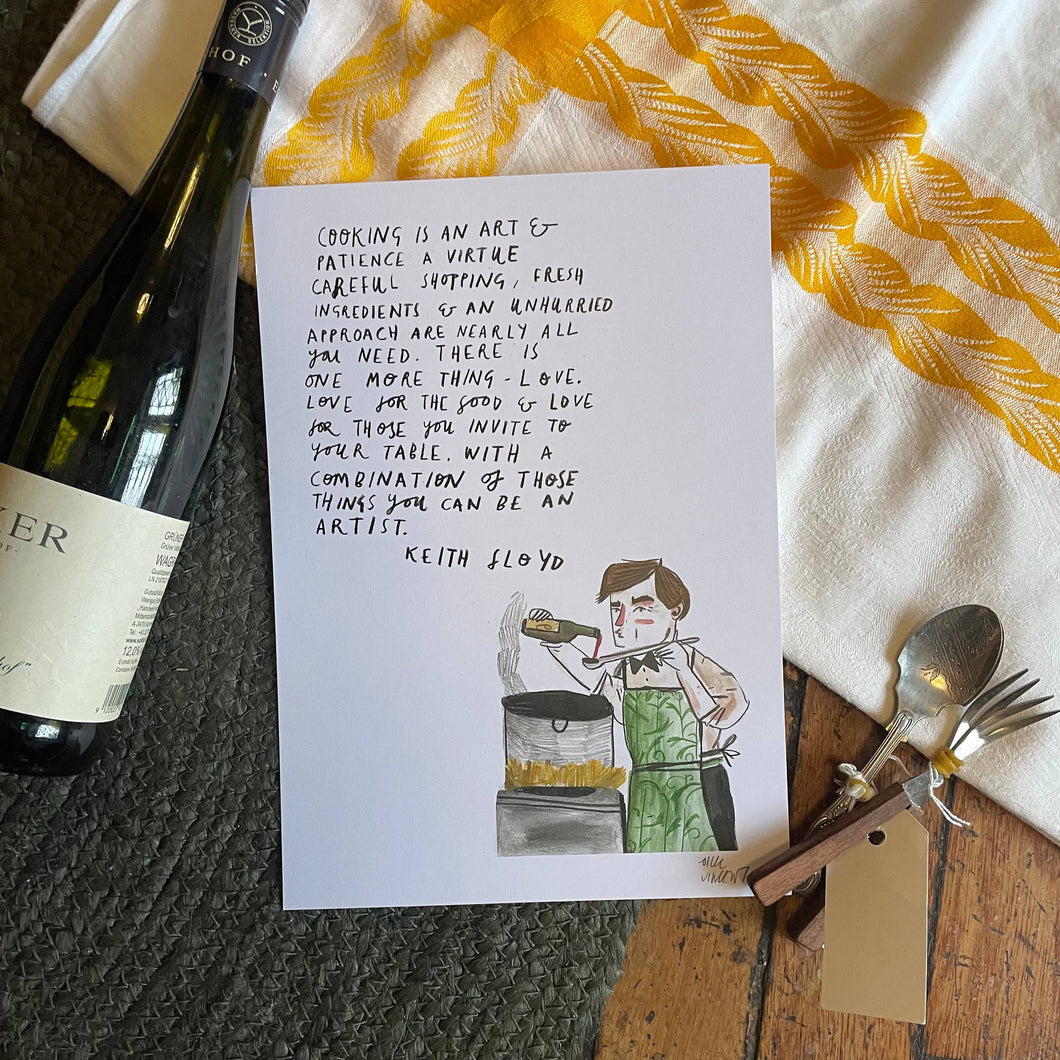 COOKING IS AN ART &
PATIENCE A VIRTUE
CAREFUL SHOPPING, FRESH
INGREDIENTS & AN UNHURRIED
APPROACH ARE NEARLY ALL
YOU NEED. THERE IS
ONE MORE THING - LOVE.
LOVE FOR THE FOOD & LOVE
FOR THOSE YOU INVITE TO
YOUR TABLE. WITH A
COMBINATION OF THOSE
THINGS YOU CAN BE AN
ARTIST.
KEITH FLOYD
VINCENT
HOF
12,0%